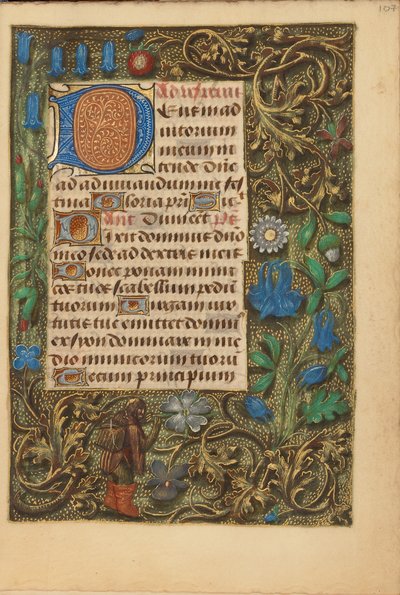 107
Ad vesperas
Deus in ad
iutorium
meum in
tende Dñe
ad adiuuandum me fes
tina Gloria pri Sic
Ant Dum eet Ps
Dixit dominus dño
meo sede a dextris meis
Donec ponam inimi
cos tuos scabellum pedū
tuorum Virgam vir
tutis tue emittet dominꝰ
ex syon dominare in me
dio inimicorum tuorū
Tecum principium